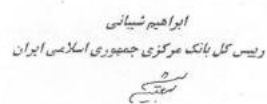 ابراهیم شیبانی
رییس کل بانک مرکزی جمهوری اسلامی ایران